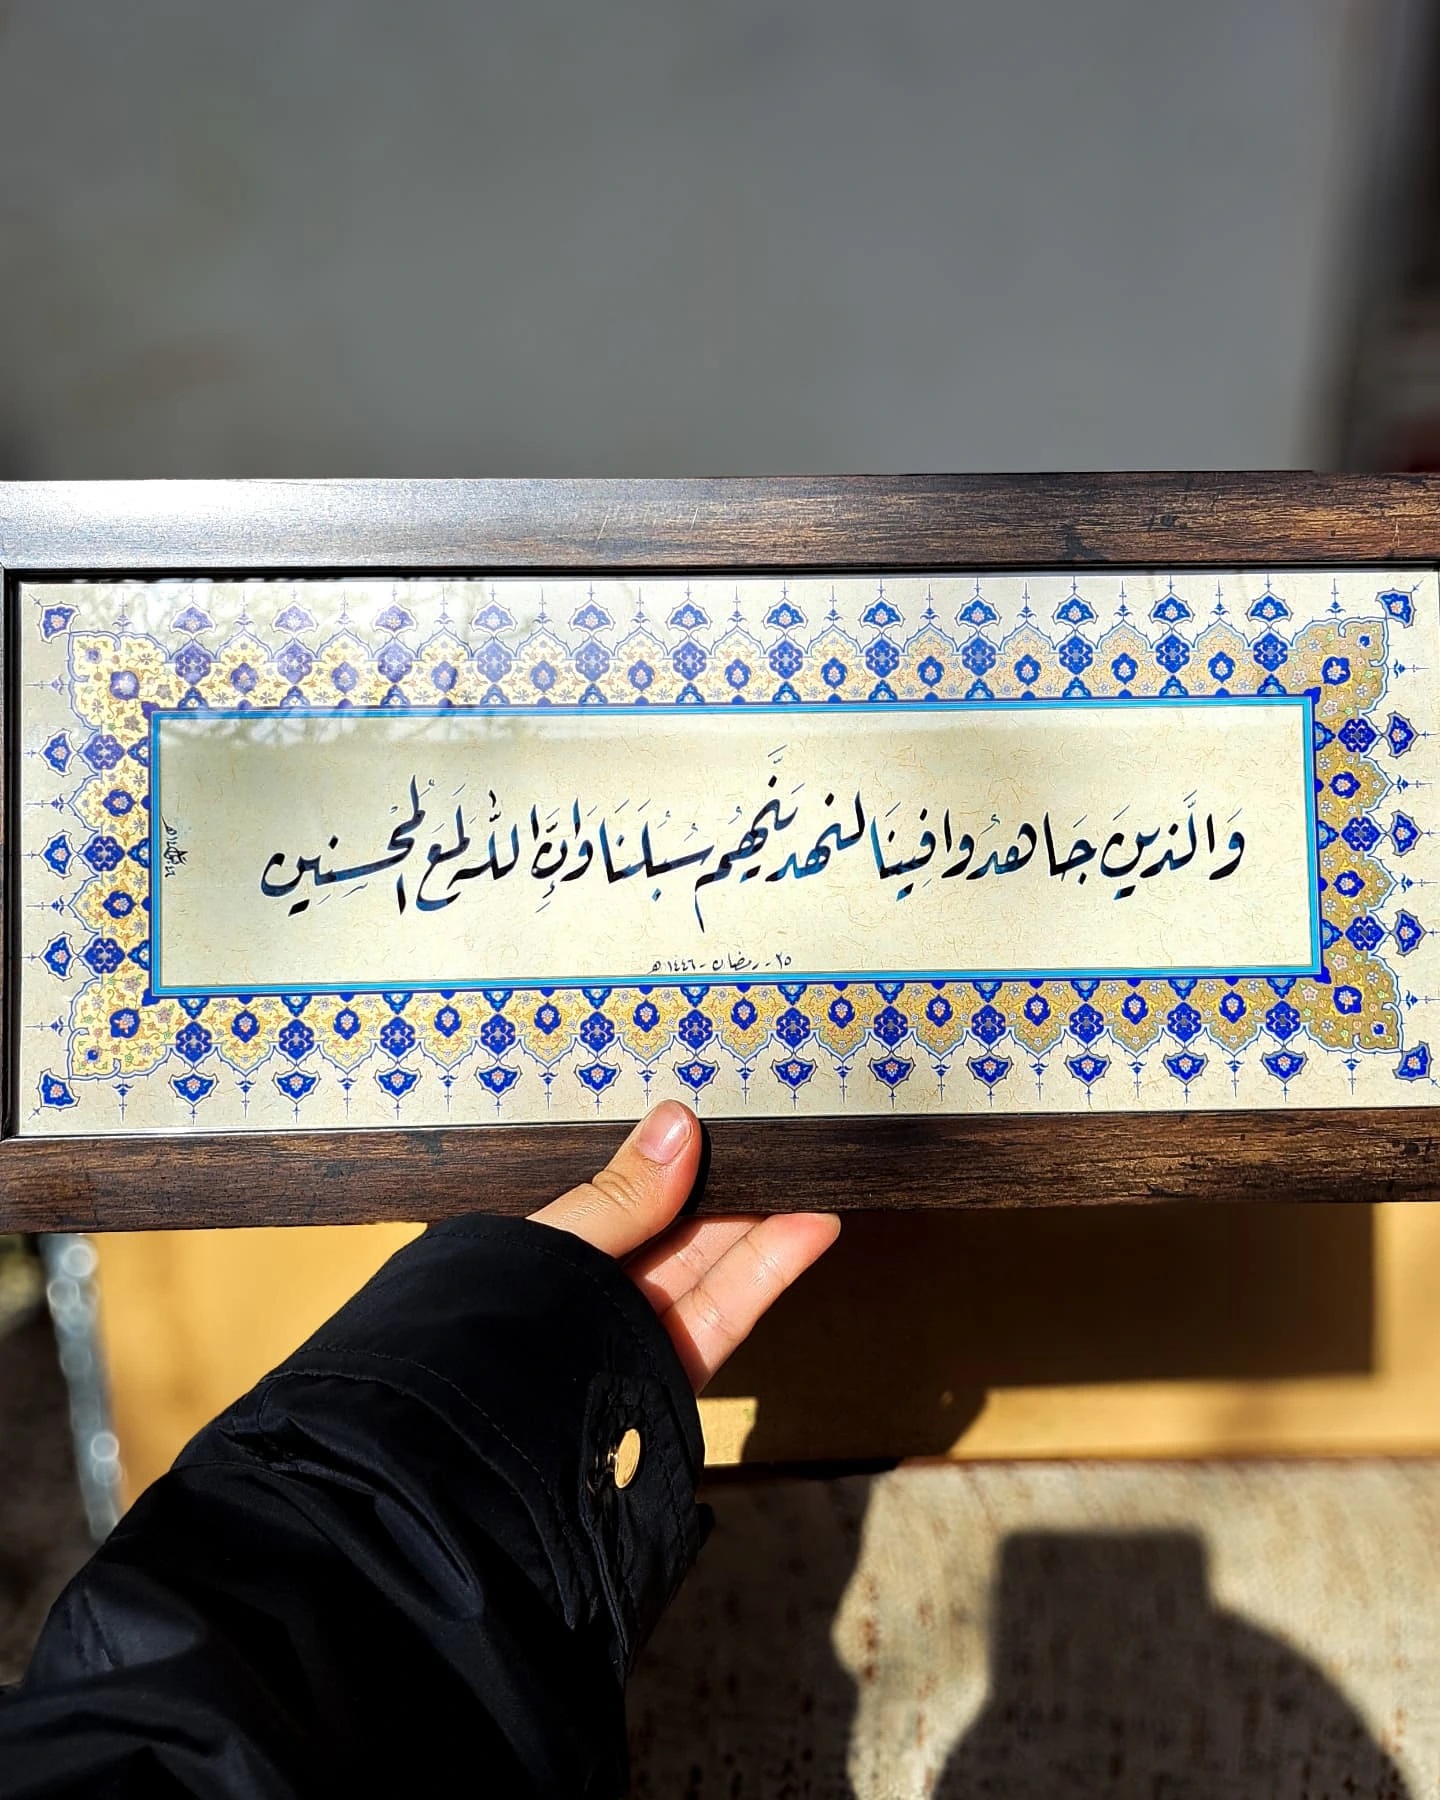 وَالَّذينَ جَاهدُوا فِينَا لنهدينَّهُم سُبُلَنَا وَإِنَّ اللّٰه لَمَعَ الْمُحْسِنِين
٢٥ - رمضان - ١٤٤٦ هـ